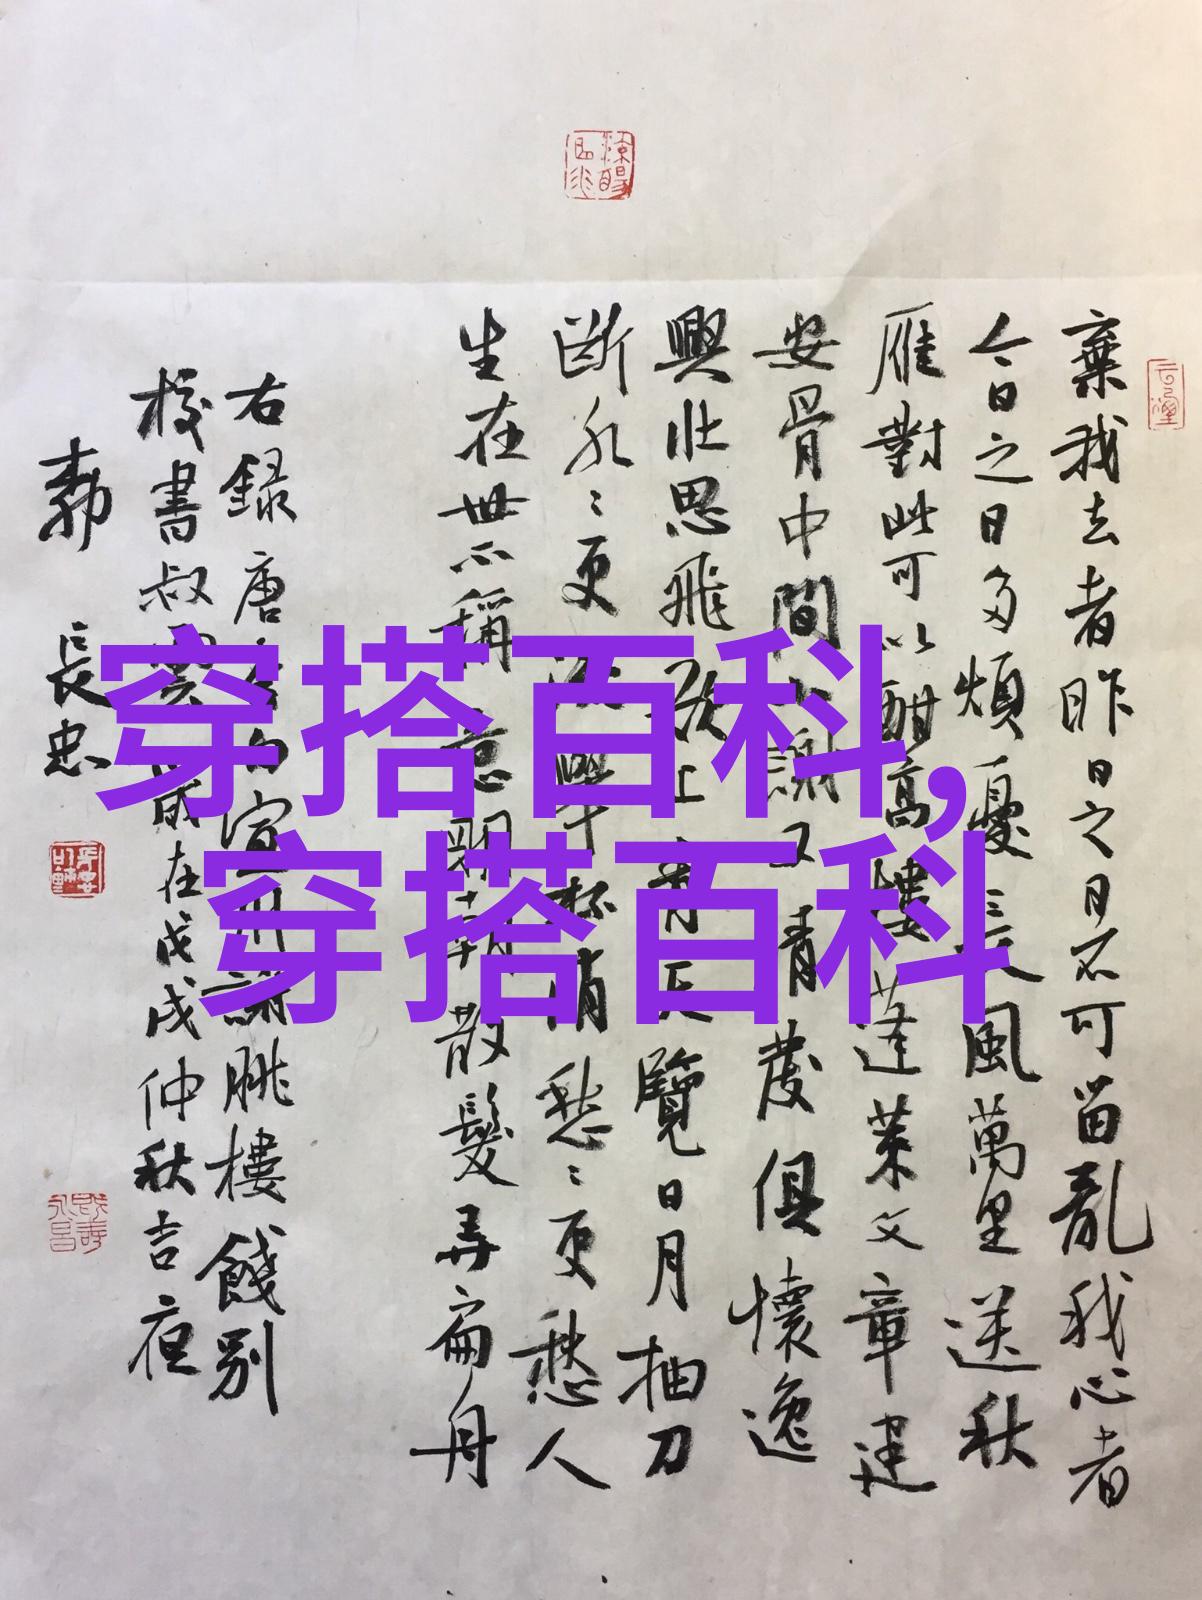 棄我去者昨日之日不可留亂我心者
今日之日多煩憂長風萬里送秋
雁對此可以酣高樓蓬萊文章建
安骨中間小謝又清發俱懷逸
興壯思飛欲上青天覽日月抽刀
斷水〻更流舉杯消愁〻更愁人
生在世不稱意明朝散髮弄扁舟
右録唐李白宣州謝朓樓餞別
校書叔雲歲在戊戌仲秋吉夜
長忠
穿搭百科,
穿搭百科